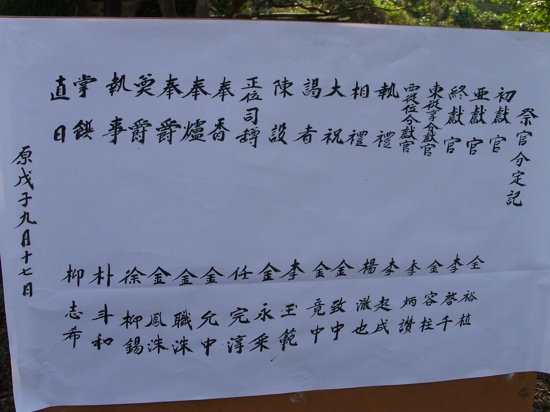 祭官分定記
初獻官
亞獻官
終獻官
東從享分獻官
西從享分獻官
執禮
相禮
大祝
謁者
陳設
正位司罇
奉香
奉爐
奉爵
奠爵
執事
掌饌
直日
全裕
李啓千
金容柱
李炳讚
李起成
楊澈
金致中
金竟中
李玉範
金永采
任完淳
金允中
金職洙
金鳳洙
徐柳錫
朴斗和
柳志希
原戊子九月十七日